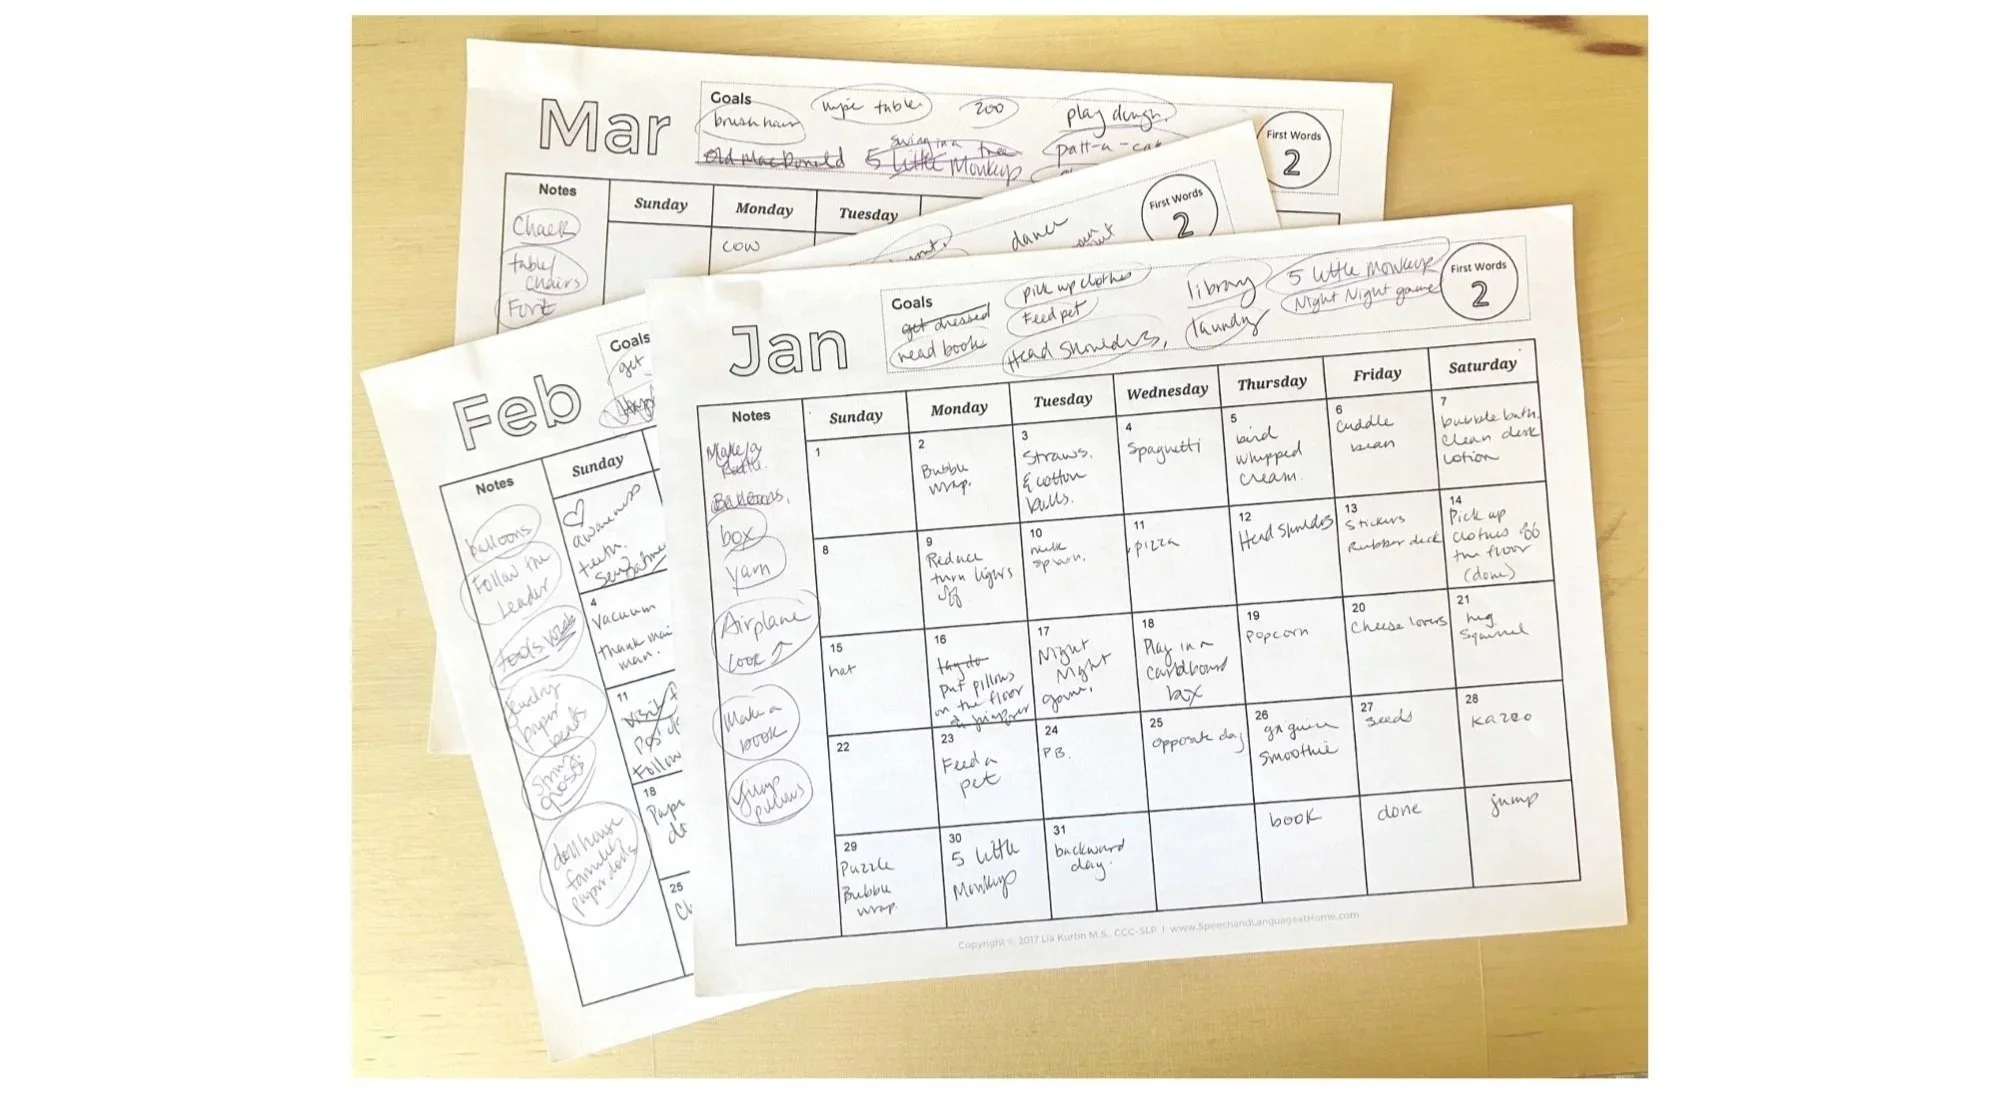 Mar
Goals
brush hair
wipe table
zoo
play dough
Old MacDonald
swinging in a tree
5 Little Monkeys
patt-a-cak
First Words
2
Notes
Sunday
Monday
Tuesday
Chalk
table/
chairs
Fort
cow
dance
First Words
2
Feb
Goals
get
Notes
Sunday
balloons
Follow the
Leader
tools
jewelry
paper
beads
String
doll house
family
paper dolls
awareness
teeth.
4
Vacuum
thank mai
man.
11
Visit
Follow
18
25
Jan
Goals
get dressed
read book
pick up clothes
Feed pet
Head Shoulders,
library
laundry
5 little Monkeys
Night Night game
First Words
2
Notes
Sunday
Monday
Tuesday
Wednesday
Thursday
Friday
Saturday
Make a
Balloons.
box
yarn
Airplane
Look
Make a
book
Jump
pillows
1
2
Bubble
wrap.
3
Straws.
& cotton
balls.
4
Spaghetti
5
bird
whipped
cream.
6
Cuddle
7
bubble bath.
Clean desk
Lotion
8
9
Reduce
turn lights
off
10
11
pizza
12
Head Shoulders
13
Stickers
Rubber duck
14
Pick up
clothes off
the floor
(done)
15
hat
16
put pillows
on the floor
17
Night
Night
game.
18
Play in a
cardboard
box
19
Popcorn
20
Cheese lovers
21
hug
Squirrel
22
23
Feed a
pet
24
PB.
25
opposite day
26
smoothie
27
seeds
28
Kazoo
29
Puzzle
Bubble
wrap.
30
5 Little
Monkeys
31
backward
day.
book
done
jump
Copyright © 2017 Lia Kurtin M.S., CCC-SLP | www.SpeechandLanguageatHome.com